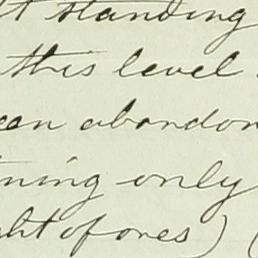 t standing
this level
een abandon
ning only
ght of ores) (